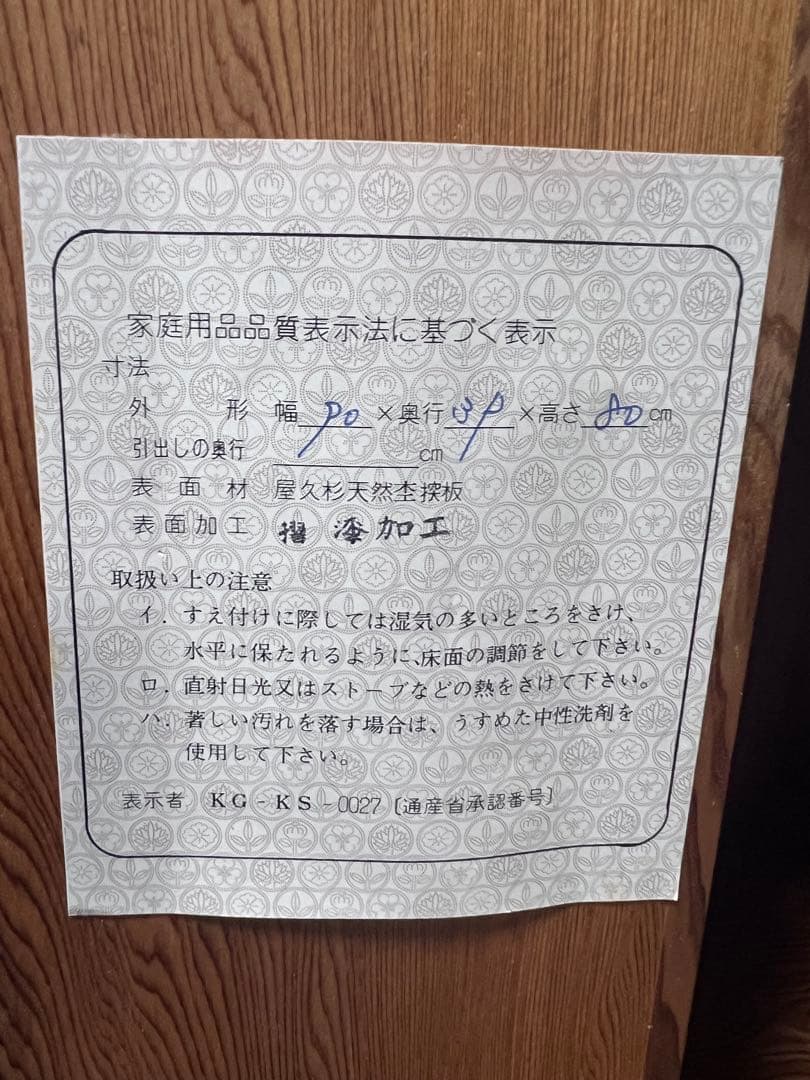 家庭用品品質表示法に基づく表示
寸法
外形 幅 90 ×奥行 39 ×高さ 80 cm
引出しの奥行 cm
表面材 屋久杉天然杢探板
表面加工 摺漆加工
取扱い上の注意
イ. すえ付けに際しては湿気の多いところをさけ、
水平に保たれるように、床面の調節をして下さい。
ロ. 直射日光又はストーブなどの熱をさけて下さい。
ハ. 著しい汚れを落す場合は、うすめた中性洗剤を
使用して下さい。
表示者 KG-KS-0027 〔通産省承認番号〕